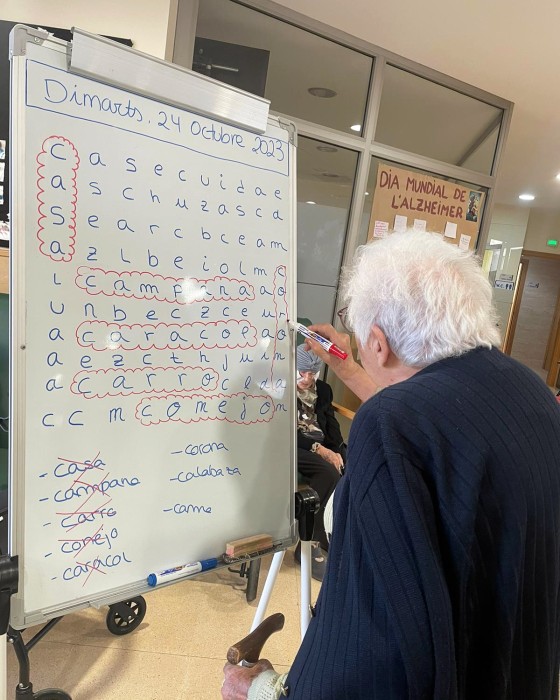 Dimarts, 24 Octubre 2023
c a s e c u i d a e
a s c h u z a s c a
s e a r c b c e a m
a z l b e i o l m c
i c a m p a n a a o
u n b e c z c e u r
a c a r a c o l a o
a e z c t h j u i n
a c a r r o c l d a
c c m c o n e j o n
- casa
- campana
- carro
- conejo
- caracol
- corona
- calabaza
- cama
DIA MUNDIAL DE
L'ALZHEIMER